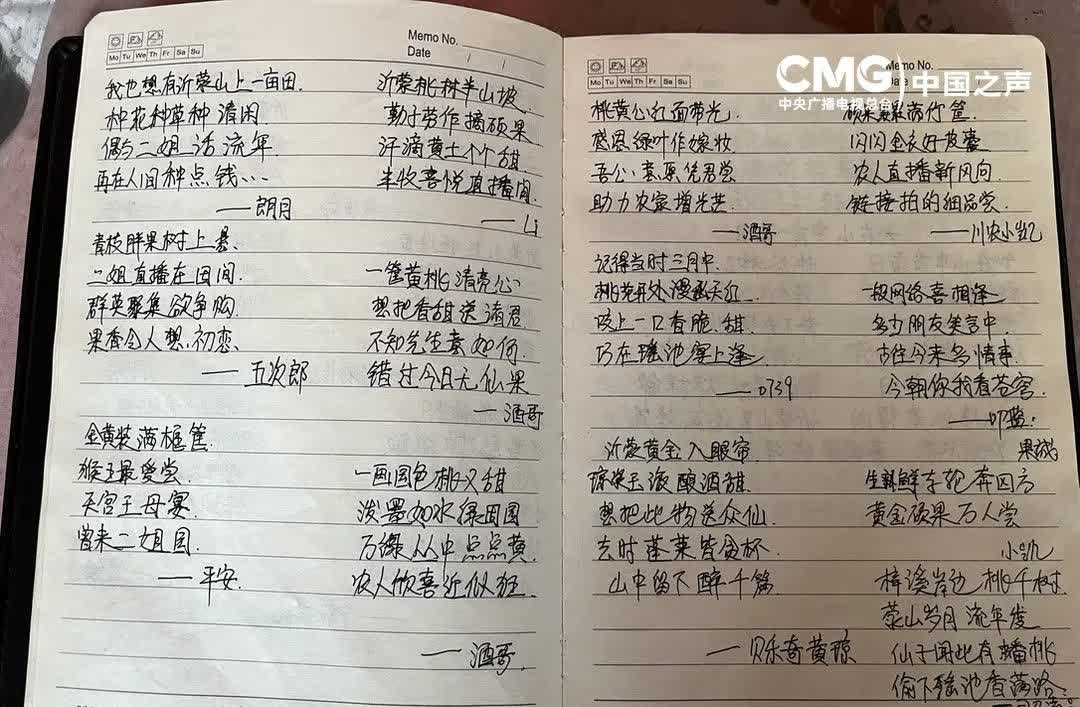 Mo Tu We Th Fr Sa Su
Memo No.
Date / /
我也想有沂蒙山上一亩田.
种花种草种清闲
偶与二姐话流年.
再在人间种点钱...
——朗月
沂蒙桃林半山坡.
勤于劳作摘硕果
汗滴黄土个个甜
丰收喜悦直播间.
——Li
青枝胖果树上悬、
二姐直播在田间.
群英聚集欲争购
果香令人想初恋、
——五次郎
一筐黄桃清亮心
想把香甜送诸君
不知先生意如何
错过今日无仙果
——酒哥
金黄装满框筐.
猴王最爱尝
天宫王母宴.
曾来二姐园.
——平安.
一画国色桃又甜
泼墨如水绿田园
万绿丛中点点黄.
农人欣喜近似狂.
——酒哥.
CMG 中国之声
中央广播电视总台
Mo Tu We Th Fr Sa Su
Memo No.
Date
桃黄公主面带光.
感恩绿叶作嫁妆
吾公意愿凭君尝
助力农家增光芒
——酒哥
硕果累累满竹筐.
闪闪金衣好皮囊
农人直播新风向.
链接拍的细品尝.
——川农小凯
记得当时三月中.
桃花开处漫天红.
咬上一口香脆、甜
巧在瑶池宴上逢
——0739
一段网络喜相逢
多少朋友笑言中.
古往今来多情事
今朝你我看苍穹.
——叮蓝.
沂蒙黄金入眼帘
琼浆玉液酿酒甜.
想把此物送众仙
去时蓬莱皆贪杯
山中留下醉千篇
——贝乐奇黄琼
果城
生鲜车轮奔四方
黄金硕果万人尝
小凯
梓溪岸边桃千树.
蒙山岁月流年度
仙子闻此有蟠桃
偷下瑶池香满路.